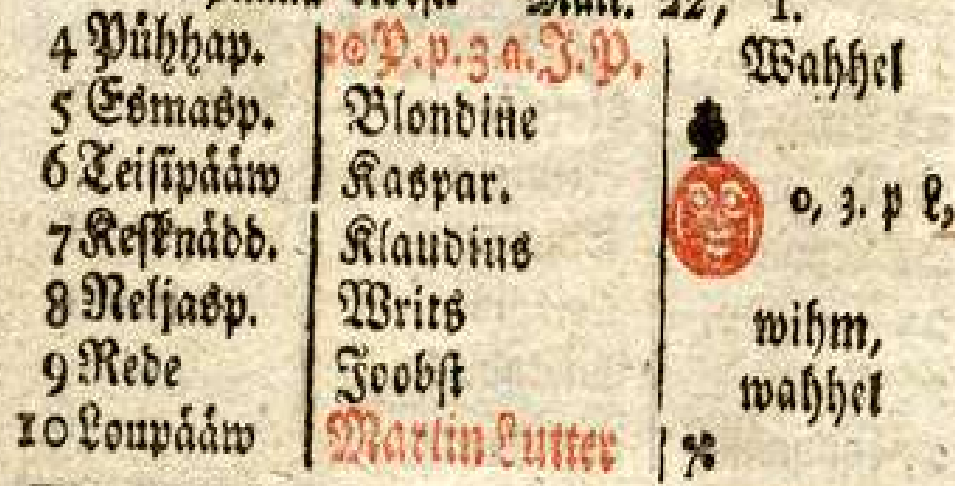 22, 1.
4 Pühhap. 20 P. p. 3 a. J. P. Wahhel
5 Esmasp. Blondine
6 Teisipääw Kaspar. 0, 3. p L,
7 Kesknädd. Klaudius
8 Neljasp. Writs wihm,
9 Rede Joobst wahhel
10 Loupääw Martin Lutter